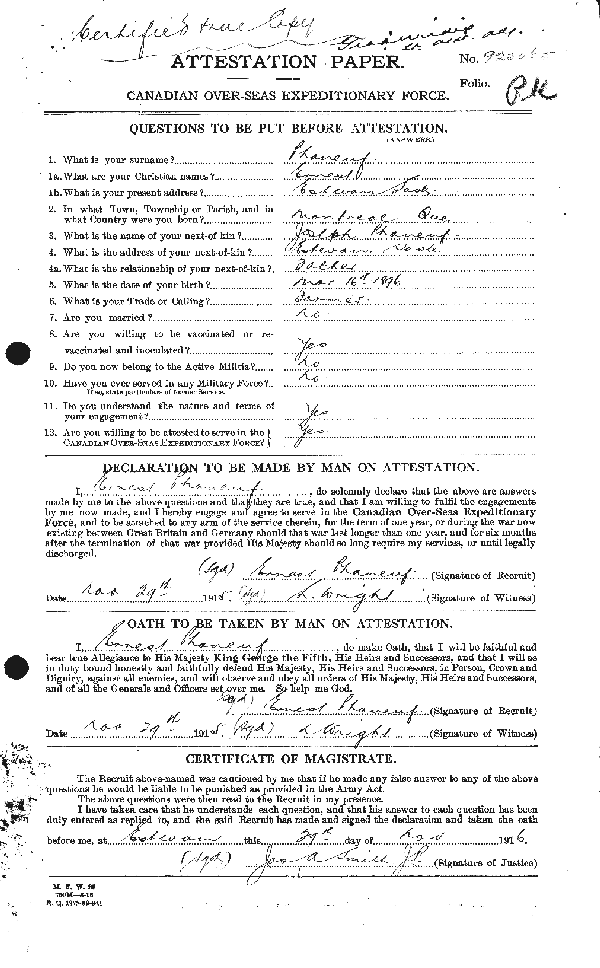 Certified true Copy
ATTESTATION PAPER.
No.
Folio.
CANADIAN OVER-SEAS EXPEDITIONARY FORCE.
QUESTIONS TO BE PUT BEFORE ATTESTATION.
(ANSWERS)
1. What is your surname? Phaneuf
1a. What are your Christian names? Ernest
1b. What is your present address? Estevan Sask
2. In what Town, Township or Parish, and in
what Country were you born? Montreal Que
3. What is the name of your next-of kin? Joseph Phaneuf
4. What is the address of your next-of-kin? Estevan Sask
4a. What is the relationship of your next-of-kin? Father
5. What is the date of your birth? Mar 16th 1896
6. What is your Trade or Calling? Farmer
7. Are you married? No
8. Are you willing to be vaccinated or re-
vaccinated and inoculated? Yes
9. Do you now belong to the Active Militia? No
10. Have you ever served in any Military Force? No
If so, state particulars of former Service.
11. Do you understand the nature and terms of
your engagement? Yes
12. Are you willing to be attested to serve in the Yes
CANADIAN OVER-SEAS EXPEDITIONARY FORCE?
DECLARATION TO BE MADE BY MAN ON ATTESTATION.
I, Ernest Phaneuf, do solemnly declare that the above are answers
made by me to the above questions and that they are true, and that I am willing to fulfil the engagements
by me now made, and I hereby engage and agree to serve in the Canadian Over-Seas Expeditionary
Force, and to be attached to any arm of the service therein, for the term of one year, or during the war now
existing between Great Britain and Germany should that war last longer than one year, and for six months
after the termination of that war provided His Majesty should so long require my services, or until legally
discharged.
(Sgd) Ernest Phaneuf (Signature of Recruit)
Date Nov 29th 1915 (Sgd) L Wright (Signature of Witness)
OATH TO BE TAKEN BY MAN ON ATTESTATION.
I, Ernest Phaneuf, do make Oath, that I will be faithful and
bear true Allegiance to His Majesty King George the Fifth, His Heirs and Successors, and that I will as
in duty bound honestly and faithfully defend His Majesty, His Heirs and Successors, in Person, Crown and
Dignity, against all enemies, and will observe and obey all orders of His Majesty, His Heirs and Successors,
and of all the Generals and Officers set over me. So help me God.
(Sgd) Ernest Phaneuf (Signature of Recruit)
Date Nov 29th 1915 (Sgd) L Wright (Signature of Witness)
CERTIFICATE OF MAGISTRATE.
The Recruit above-named was cautioned by me that if he made any false answer to any of the above
questions he would be liable to be punished as provided in the Army Act.
The above questions were then read to the Recruit in my presence.
I have taken care that he understands each question, and that his answer to each question has been
duly entered as replied to, and the said Recruit has made and signed the declaration and taken the oath
before me, at Estevan this 29th day of Nov 1916.
(Sgd) Jas A Smith JP (Signature of Justice)
M. F. W. 23